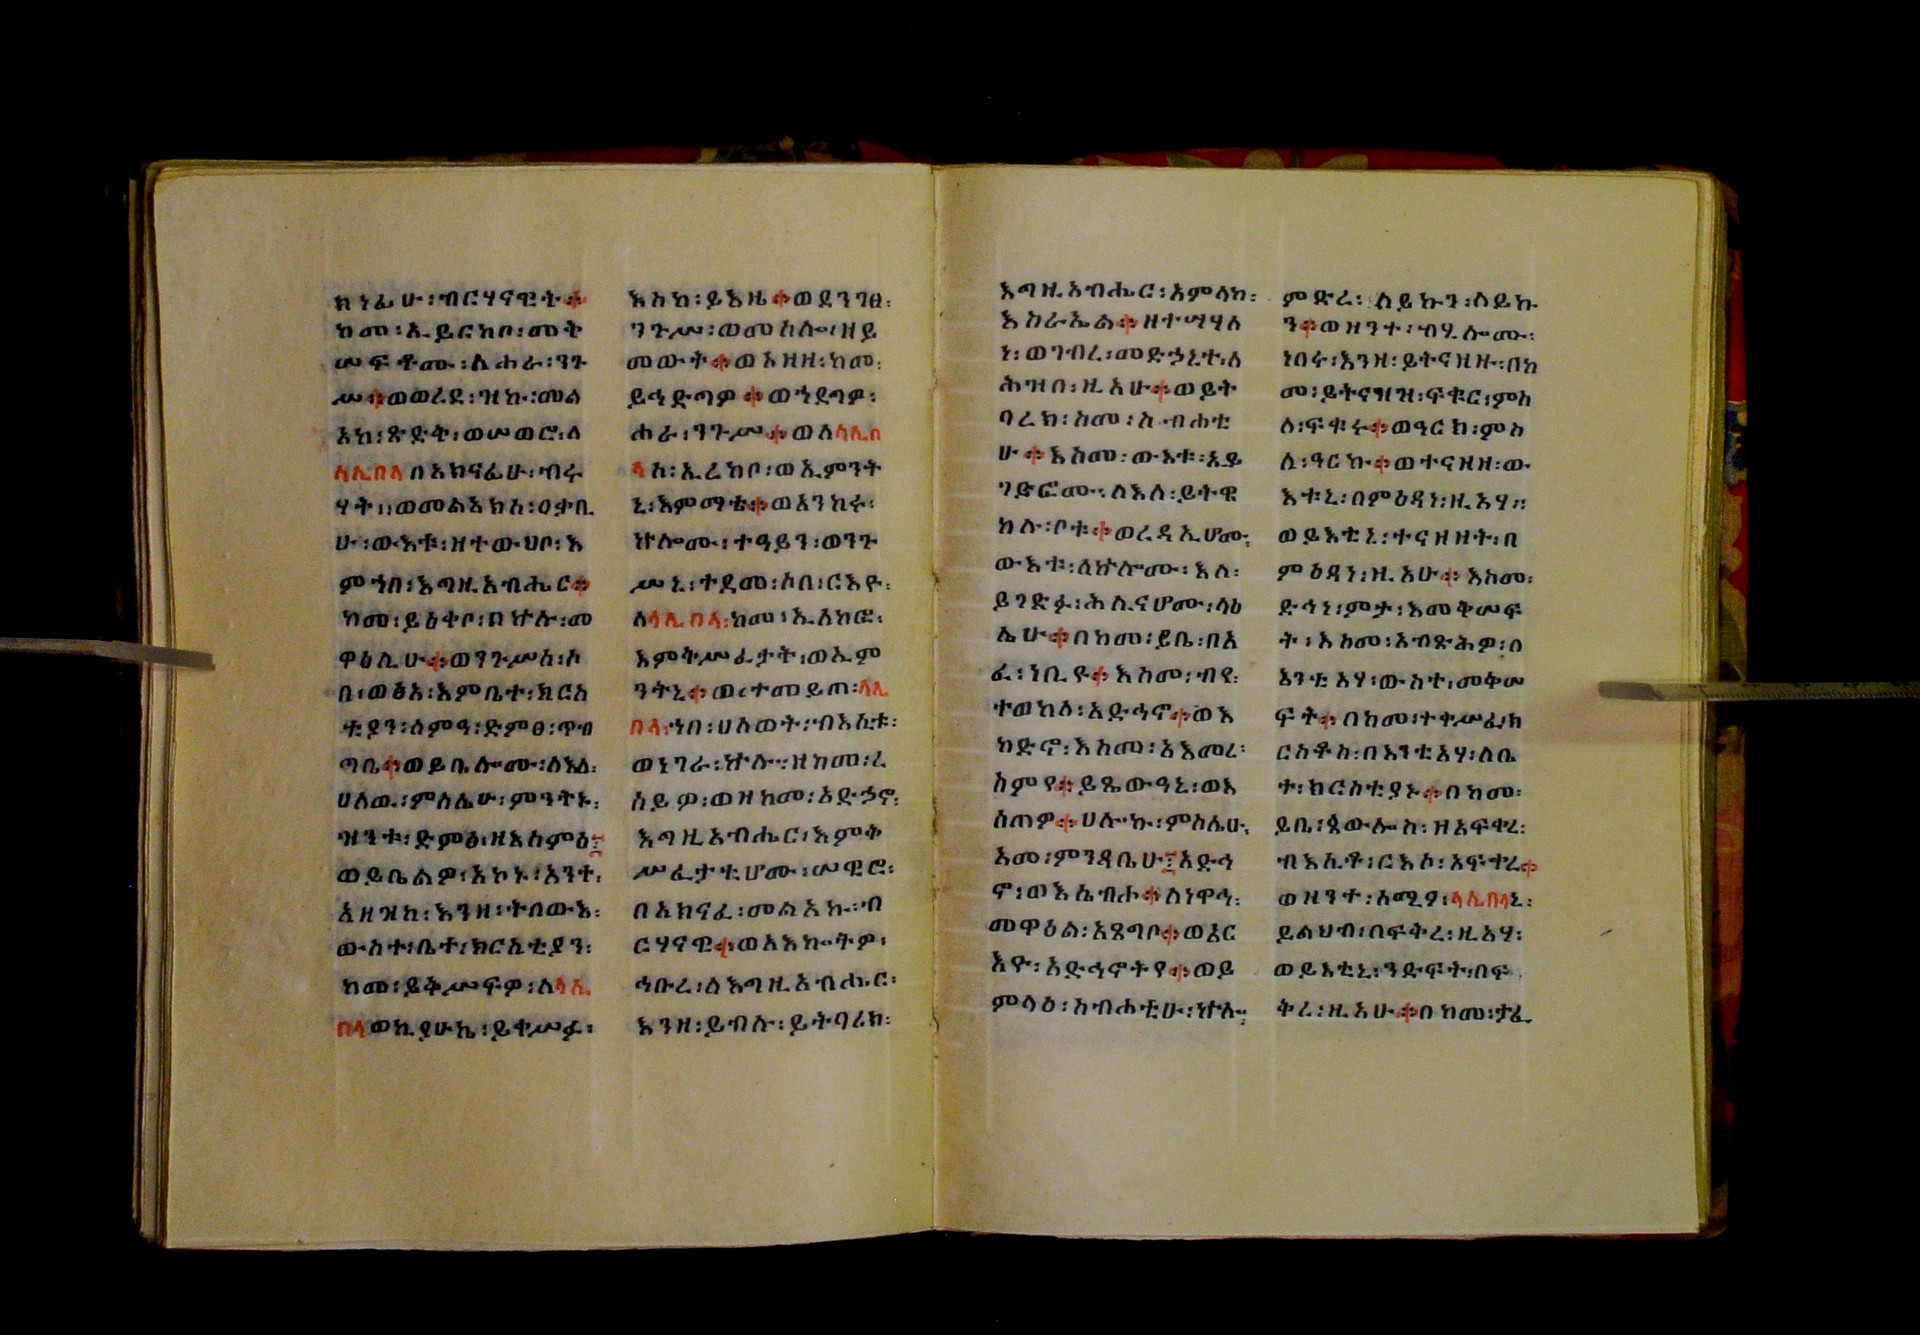 ክነፊሁ፡ብርሃናዊት፨
ከመ፡ኢይርከቦ፡መት
ሠፍቶሙ፡ለሐራ፡ንጉ
ሥ፨ወወረደ፡ዝኩ፡መል
አከ፡ጽድቅ፡ወሠወሮ፡ለ
ላሊበላ በአክናፊሁ፡ብሩ
ሃት፡፡ወመልአክሰ፡ዐቃቢ
ሁ፡ውእቱ፡ዘተውህቦ፡እ
ምኀበ፡እግዚአብሔር፨
ከመ፡ይዕቀቦ፡በኵሉ፡መ
ዋዕሊሁ፨ወንጉሥሰ፡ሶ
በ፡ወፅአ፡እምቤተ፡ክርስ
ቲያን፡ሰምዓ፡ድምፀ፡ጥብ
ጣቤ፨ወይቤሎሙ፡ለእለ፡
ሀለዉ፡ምስሌሁ፡ምንትኑ፡
ዝንቱ፡ድምፅ፡ዘእሰምዕ፤
ወይቤልዎ፡አኮኑ፡አንተ፡
አዘዝከ፡እንዘ፡ትበውእ፡
ውስተ፡ቤተ፡ክርስቲያን፡
ከመ፡ይቅሥፍዎ፡ለላሊ
በላ ወኪያሁኬ፡ይቀሥፉ፡
እስከ፡ይእዜ፨ወደንገፀ፡
ንጉሥ፡ወመሰሎ፡ዘይ
መውት፨ወአዘዘ፡ከመ፡
ይኅድግዎ፨ወኀደግዎ፡
ሐራ፡ንጉሥ፨ወለላሊበ
ላሰ፡ኢረከቦ፡ወኢምንት
ኒ፡እምማቴ፨ወአንከሩ፡
ኵሎሙ፡ተዓይን፡ወንጉ
ሥኒ፡ተደመ፡ሶበ፡ርእዮ፡
ለላሊበላ፡ከመ፡ኢለከፎ፡
እምቅሥፈታት፡ወኢም
ንትኒ፨ወተመይጠ፡ላሊ
በላ፡ኀበ፡ሀለወት፡ብእሲቱ፡
ወነገራ፡ኵሎ፡ዘከመ፡ረ
ሰይዎ፡ወዘከመ፡አድኃኖ፡
እግዚአብሔር፡እምቅ
ሥፈታቲሆሙ፡ሠዊሮ፡
በአክናፈ፡መልአኩ፡ብ
ርሃናዊ፨ወአእኰትዎ፡
ኅቡረ፡ለእግዚአብሔር፡
እንዘ፡ይብሉ፡ይትባረክ፡
እግዚአብሔር፡አምላከ፡
እስራኤል፨ዘተሣሃለ
ነ፡ወገብረ፡መድኃኒተ፡ለ
ሕዝበ፡ዚአሁ፨ወይት
ባረክ፡ስመ፡ስብሐቲ
ሁ፨እስመ፡ውእቱ፡አይ
ገድፎሙ፡ለእለ፡ይትዌ
ከሉ፡ቦቱ፨ወረዳኢሆሙ፡
ውእቱ፡ለኵሎሙ፡እለ፡
ይገድፉ፡ሕሊናሆሙ፡ላዕ
ሌሁ፨በከመ፡ይቤ፡በአ
ፈ፡ነቢዩ፨እስመ፡ብየ፡
ተወከለ፡አድኅኖ፨ወእ
ከድኖ፡እስመ፡አእመረ፡
ስምየ፨ይጼውዓኒ፡ወአ
ሰጠዎ፨ሀሎኩ፡ምስሌሁ፡
አመ፡ምንዳቤሁ፤አድኅ
ኖ፡ወእሴብሖ፨ለነዋኅ፡
መዋዕል፡አጸግቦ፨ወኣር
እዮ፡አድኅኖትየ፨ወይ
ምላዕ፡ስብሐቲሁ፡ኵሎ፡
ምድረ፡ለይኩን፡ለይኩ
ን፨ወዘንተ፡ብሂሎሙ፡
ነበሩ፡እንዘ፡ይትናዘዙ፡በከ
መ፡ይትናዝዝ፡ፍቁር፡ምስ
ለ፡ፍቁሩ፨ወዓርክ፡ምስ
ለ፡ዓርኩ፨ወተናዘዘ፡ው
እቱኒ፡በምዕዳነ፡ዚአሃ፡፡
ወይእቲኒ፡ተናዘዘት፡በ
ምዕዳነ፡ዚአሁ፨እስመ፡
ድኅነ፡ምታ፡እመቅሠፍ
ት፡እስመ፡አብጽሕዎ፡በ
እንቲአሃ፡ውስተ፡መቅሠ
ፍት፨በከመ፡ተቀሥፈ፡ክ
ርስቶስ፡በእንቲአሃ፡ለቤ
ተ፡ክርስቲያኑ፨በከመ፡
ይቤ፡ጳውሎስ፡ዘአፍቀረ፡
ብእሲቶ፡ርእሶ፡አፍቀረ፨
ወዘንተ፡አሚሃ፡ላሊበላኒ፡
ይልህብ፡በፍቅረ፡ዚአሃ፡
ወይእቲኒ፡ንድፍት፡በፍ
ቅረ፡ዚአሁ፨በከመ፡ታፈ